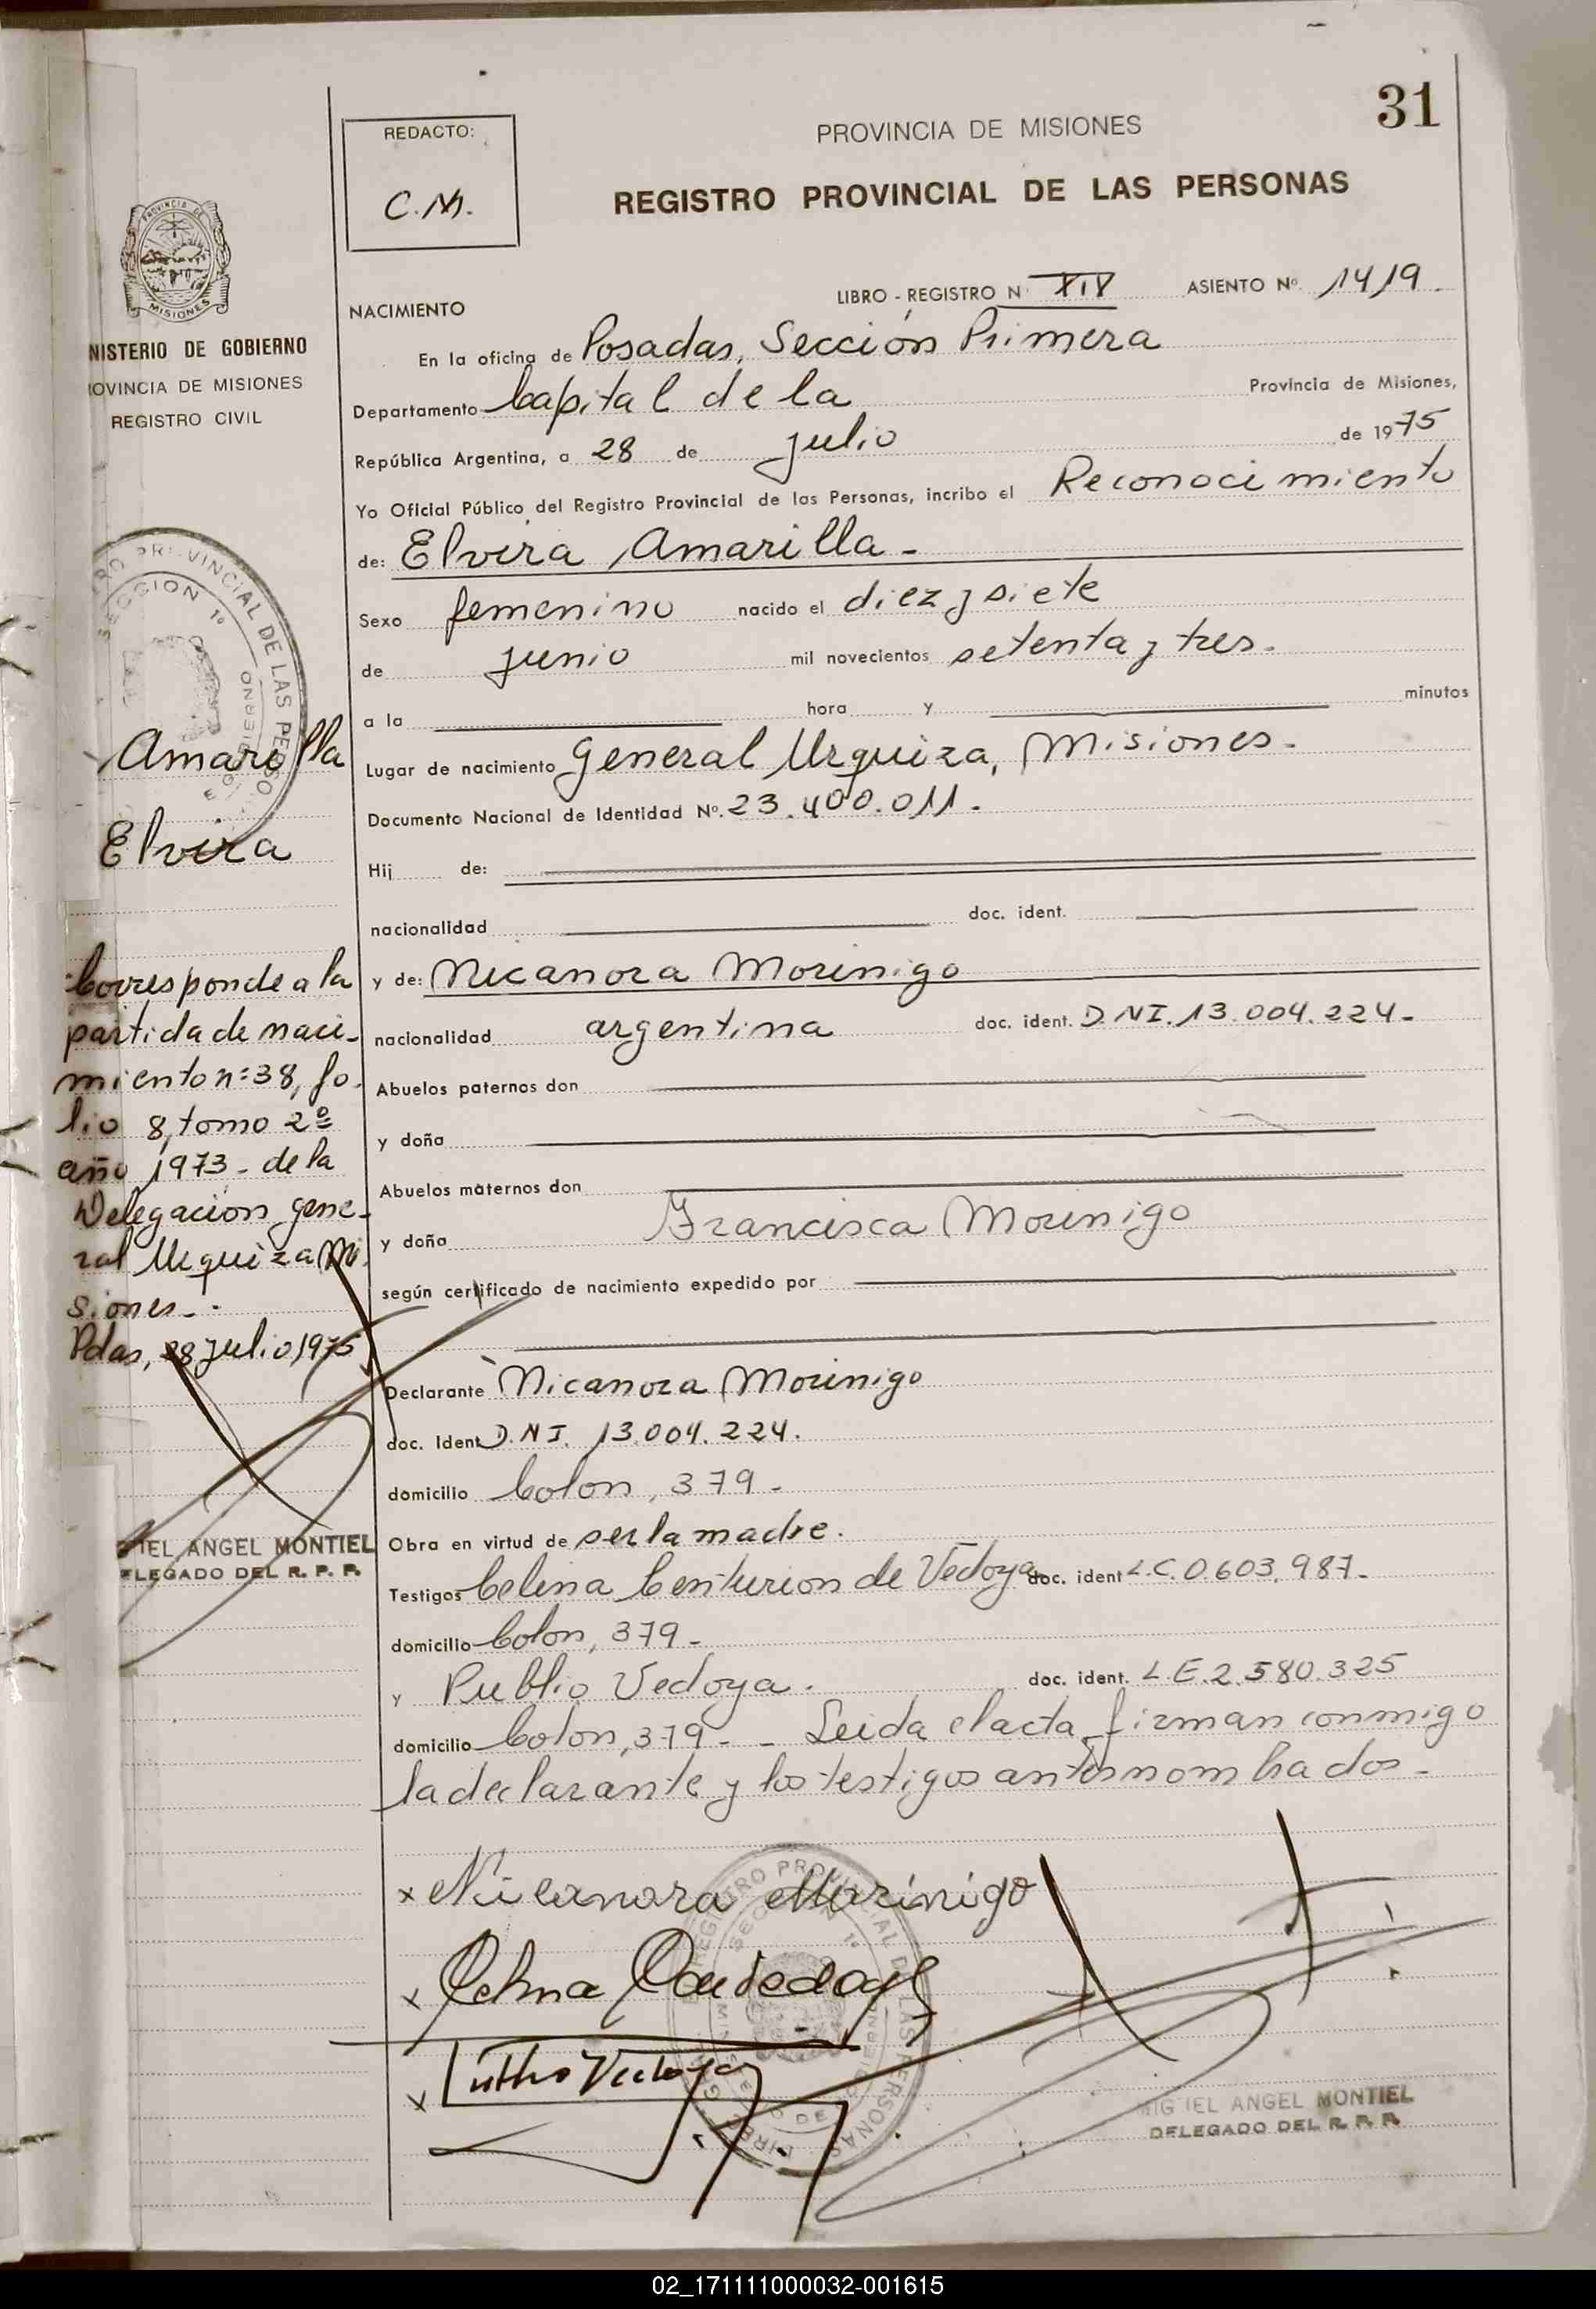 31
REDACTO:
C.M.
PROVINCIA DE MISIONES
REGISTRO PROVINCIAL DE LAS PERSONAS
PROVINCIA DE
MISIONES
NISTERIO DE GOBIERNO
OVINCIA DE MISIONES
REGISTRO CIVIL
NACIMIENTO
LIBRO - REGISTRO N XIV ASIENTO Nº 1419.
En la oficina de Posadas, Sección Primera
Departamento Capital de la Provincia de Misiones,
República Argentina, a 28 de julio de 1975
Yo Oficial Público del Registro Provincial de las Personas, incribo el Reconocimiento
de: Elvira Amarilla -
Sexo femenino nacido el diez y siete
de junio mil novecientos setenta y tres.
a la hora y minutos
Lugar de nacimiento General Urquiza, Misiones.
Documento Nacional de Identidad Nº. 23.400.011.
Hij de:
nacionalidad doc. ident.
y de: Nicanora Morinigo
nacionalidad argentina doc. ident. D.N.I. 13.004.224-
Abuelos paternos don
y doña
Abuelos maternos don
y doña Francisca Morinigo
según certificado de nacimiento expedido por
Declarante Nicanora Morinigo
doc. Ident D.N.I. 13.004.224.
domicilio Colon, 379-
Obra en virtud de ser la madre.
Testigos Celina Centurion de Vedoya doc. ident L.C.0.603.987-
domicilio Colon, 379-
y Publio Vedoya. doc. ident. L.E.2.580.325
domicilio Colon, 379- - Leida el acta firman conmigo
la declarante y los testigos antes nombrados-
x Nicanora Morinigo
x
x
MIG IEL ANGEL MONTIEL
DELEGADO DEL R. P. P.
SECCION 1º
Amarilla
Elvira
Corresponde a la
partida de naci-
miento nº 38, fo-
lio 8, tomo 2º
año 1973- de la
Delegación gene-
ral Urquiza Mi
siones-.
Pdas, 28 julio 1975
IEL ANGEL MONTIEL
ELEGADO DEL R. P. P.
02_171111000032-001615